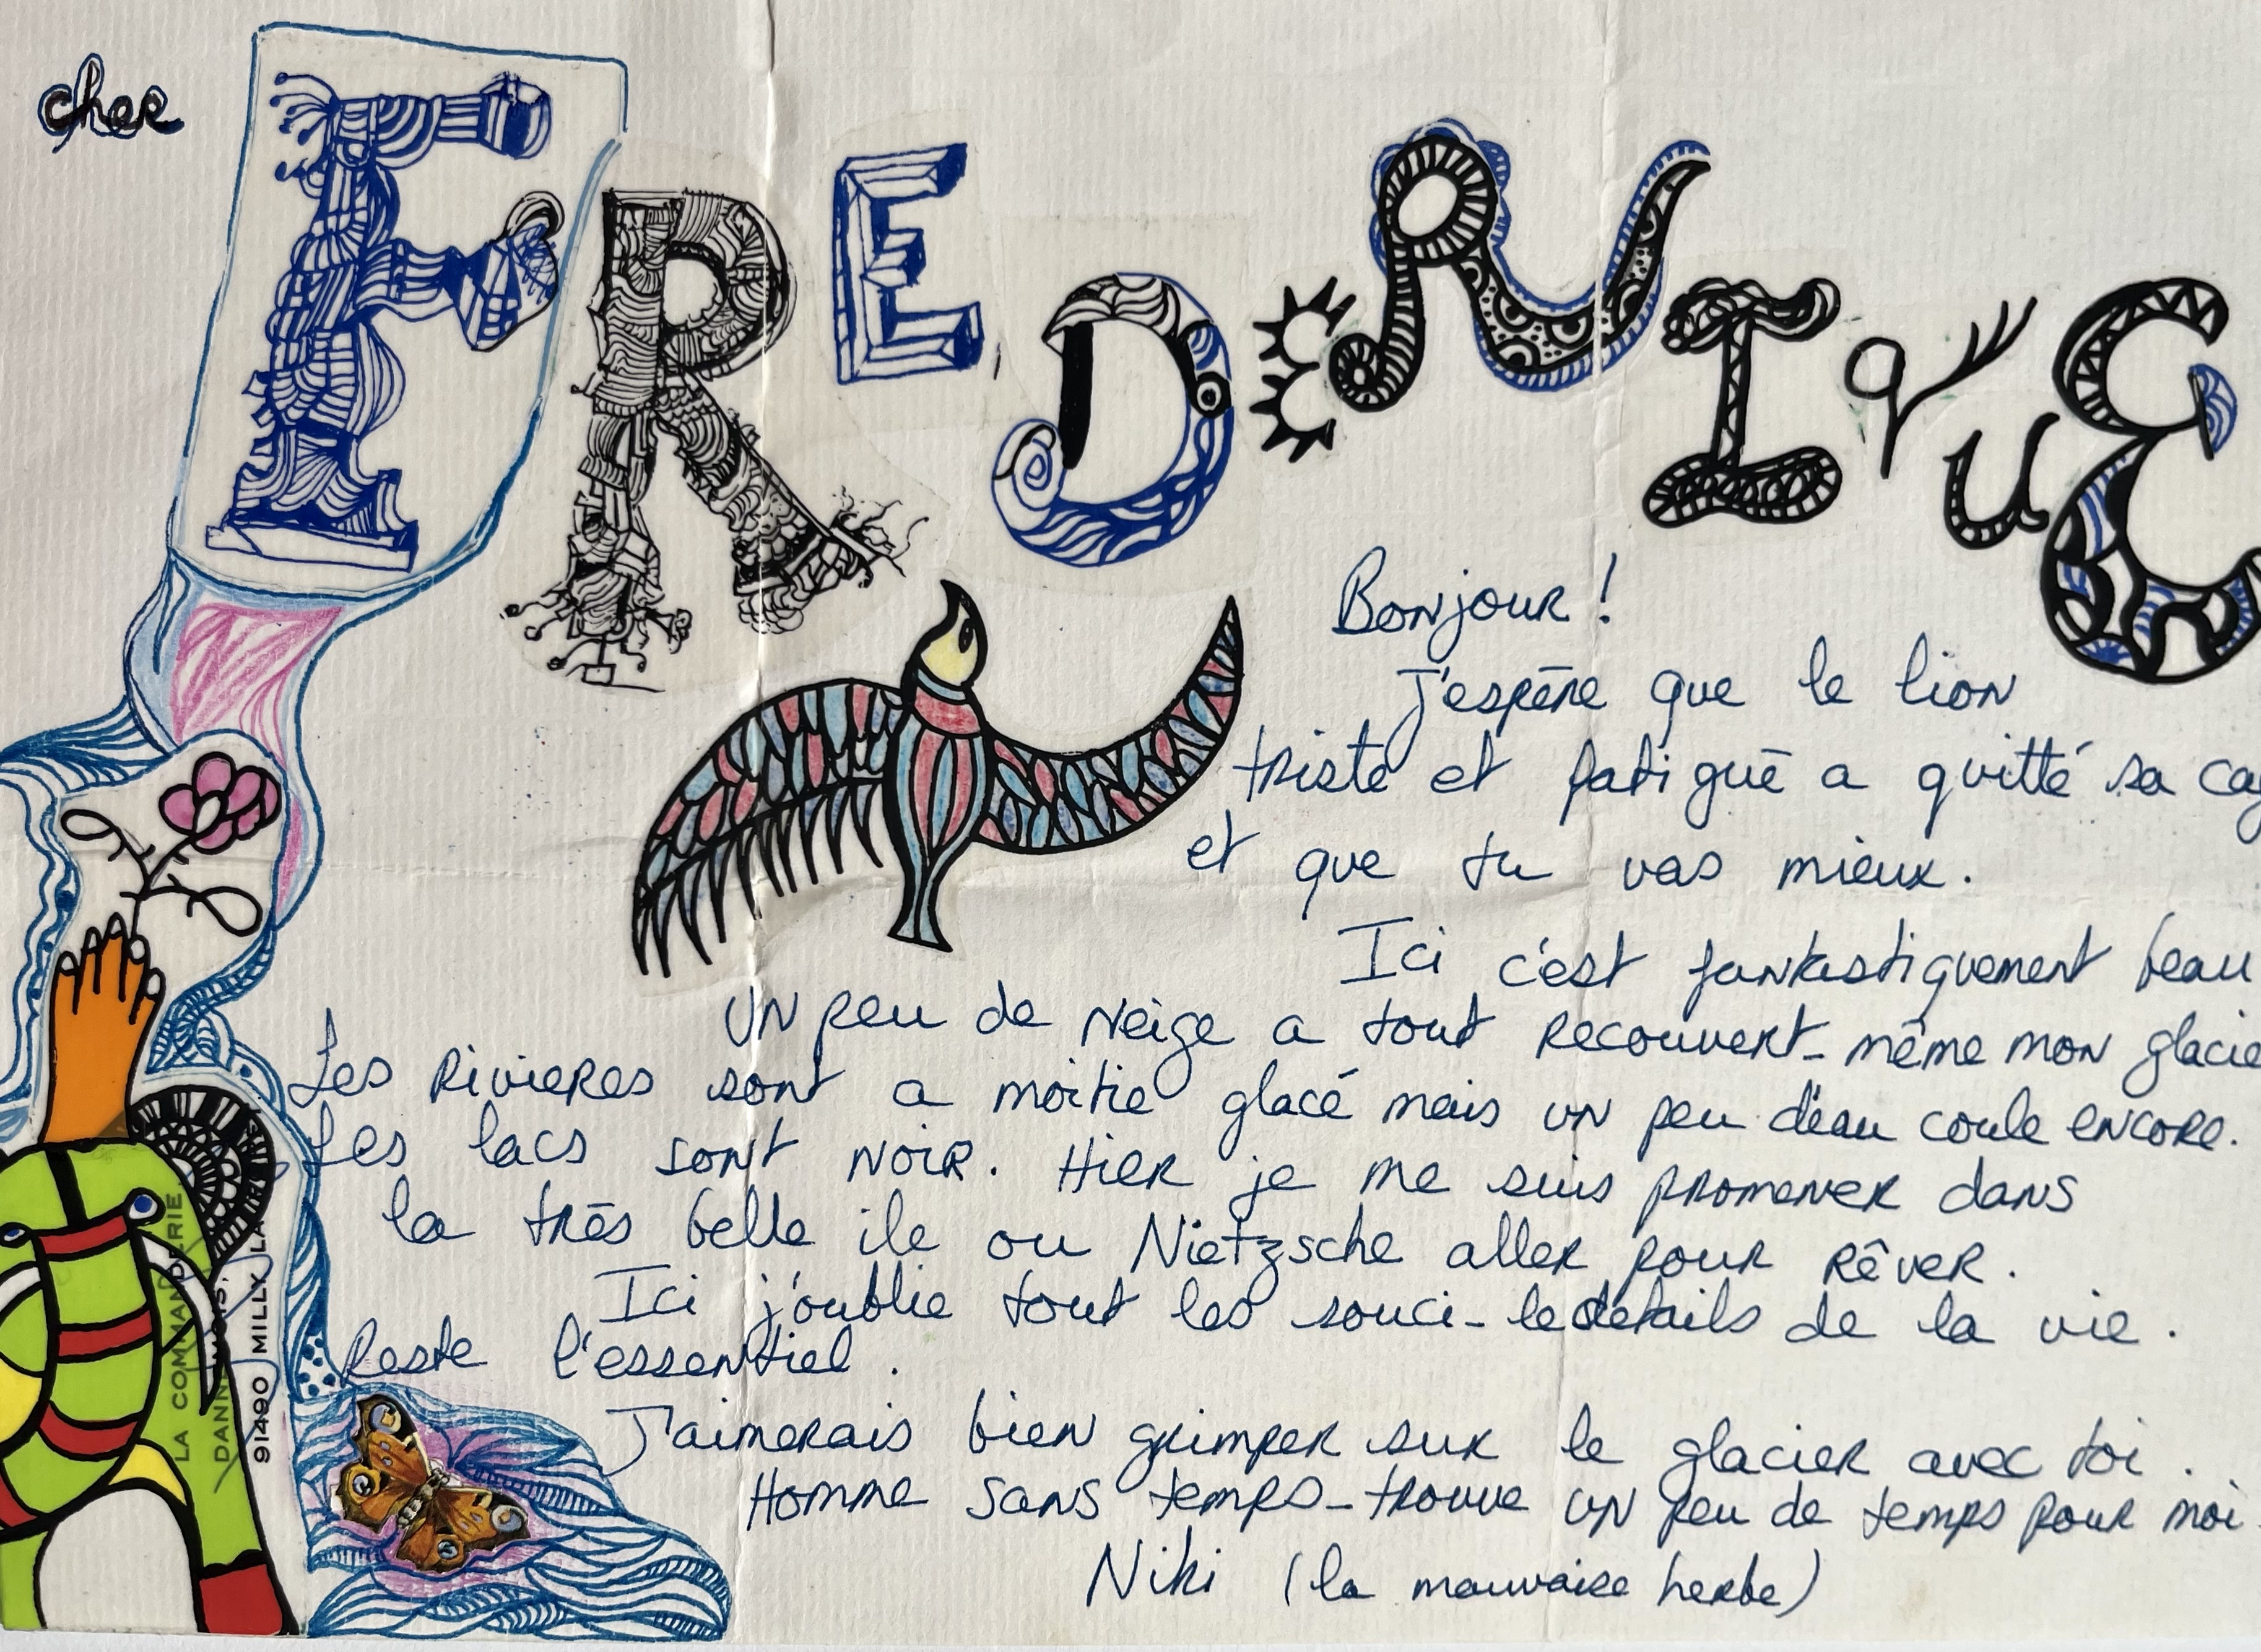 cher FREDERIQUE
Bonjour !
J'espère que le lion
triste et fatigué a quitté sa cag
et que tu vas mieux.
Ici c'est fantastiquement beau
UN peu de Neige a tout recouvert - même mon glacie
Les Rivieres sont a moitie glacé mais un peu d'eau coule encore.
Les lacs sont noir. Hier je me suis promener dans
la très belle ile ou Nietzsche aller pour rêver.
Ici j'oublie tout les souci - le details de la vie.
Reste l'essentiel.
J'aimerais bien grimper sur le glacier avec toi.
Homme sans temps - trouve un peu de temps pour moi -
Niki (la mauvaise herbe)
LA COMMANDERIE
91490 MILLY LA